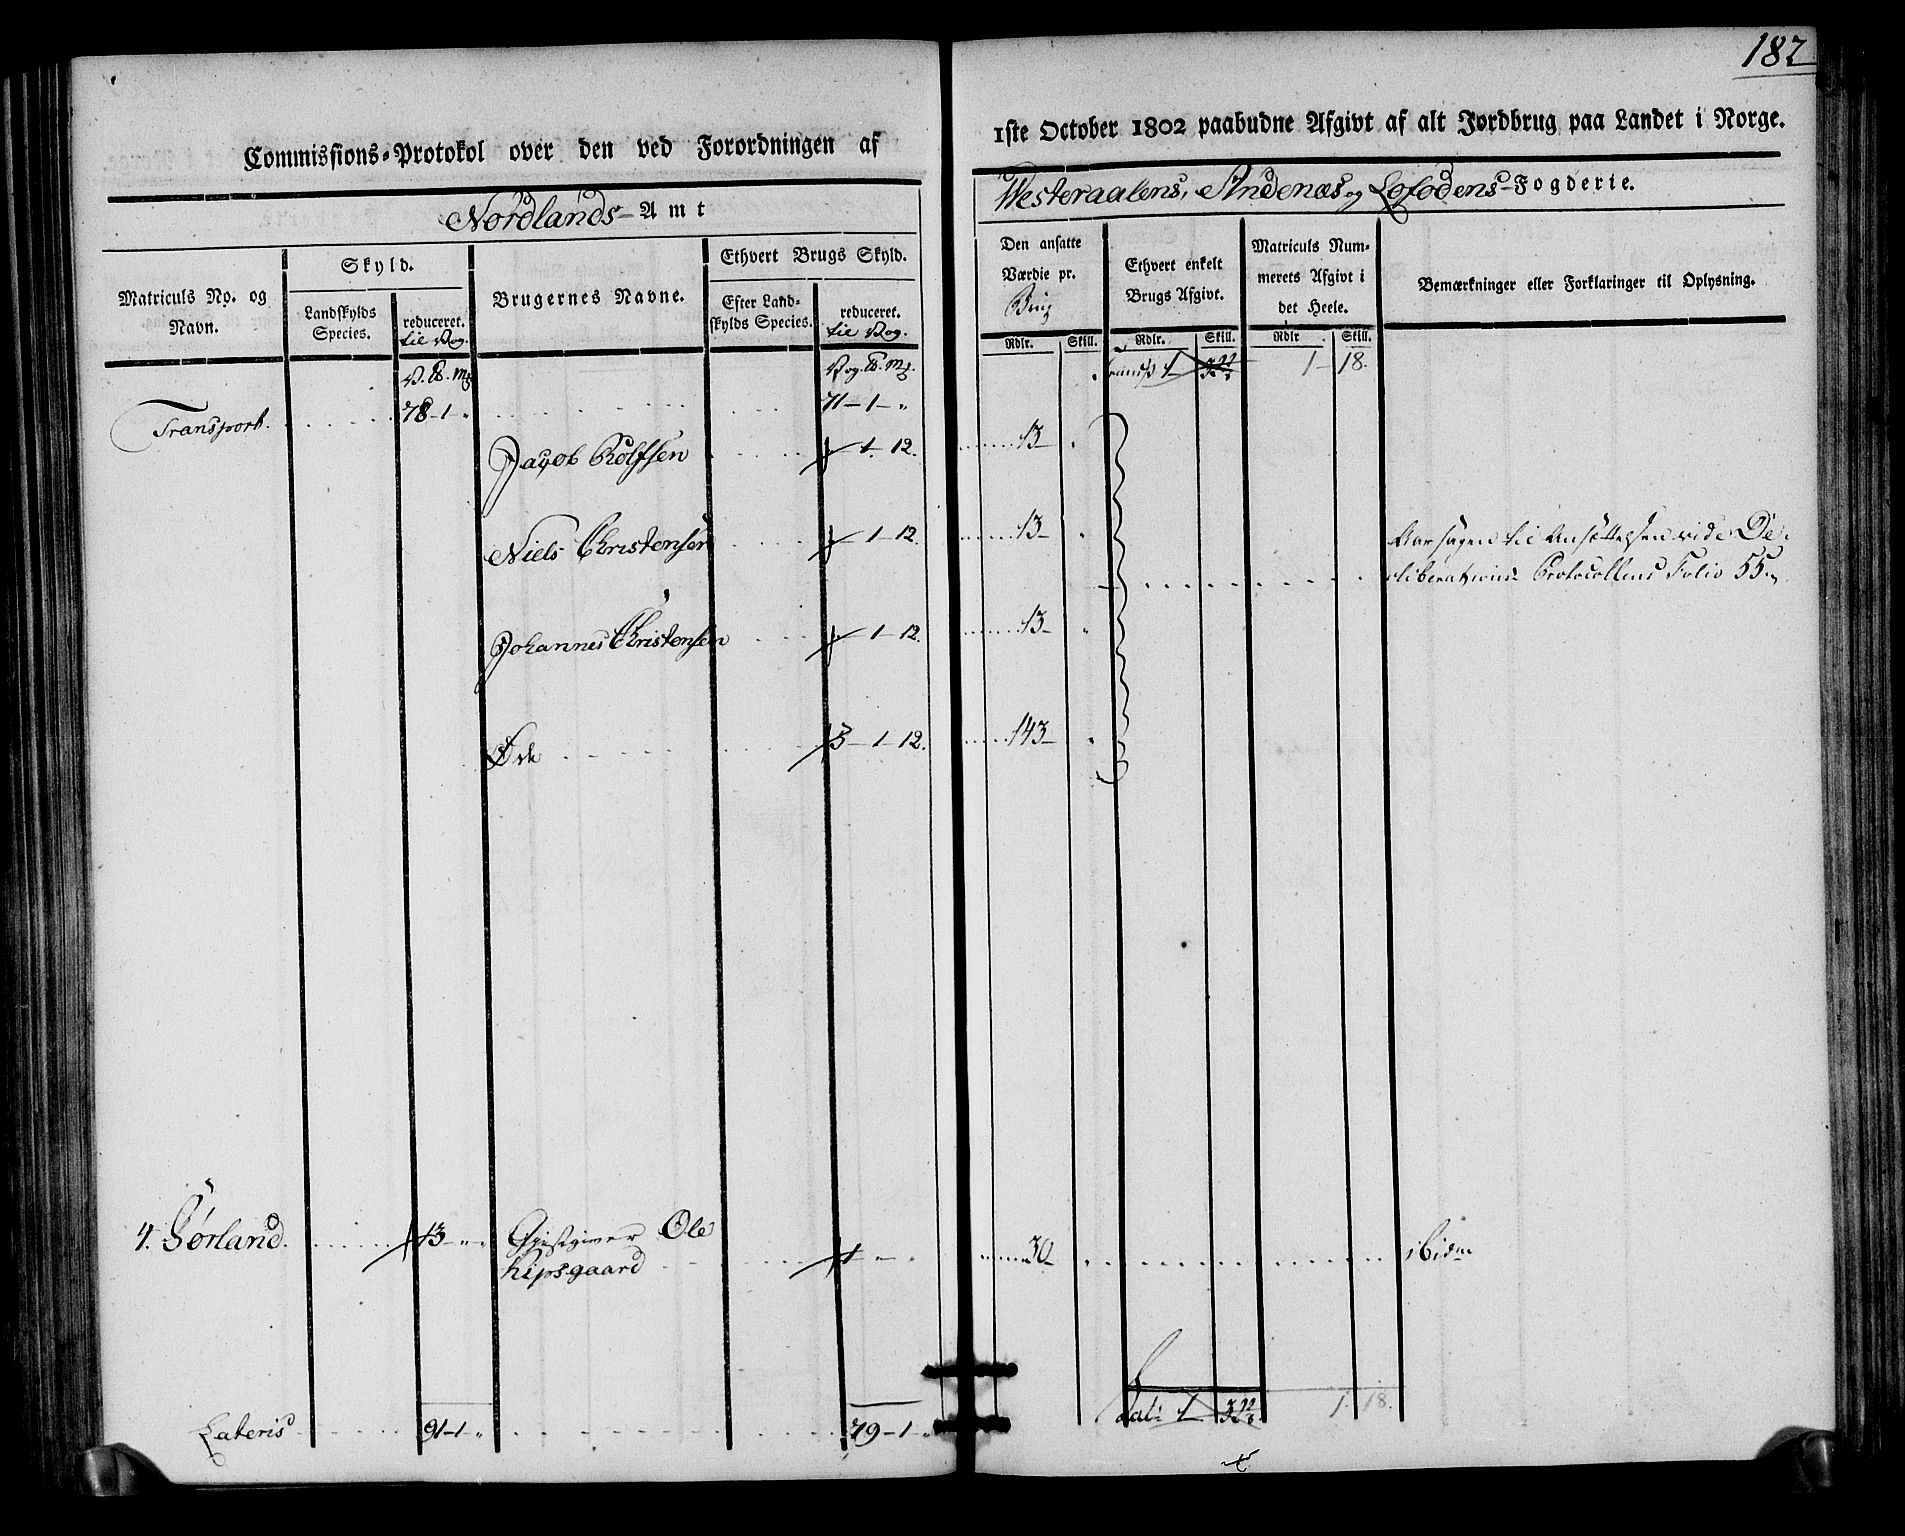 182
Commissions-Protokol over den ved Forordningen af
1ste October 1802 paabudne Afgivt af alt Jordbrug paa Landet i Norge.
Nordlands-Amt
Westeraalens, Andenæs og Lofodens-Fogderie.
Matriculs No. og Navn.
Skyld.
Landskylds Species.
reduceret. til Vog.
Brugernes Navne.
Ethvert Brugs Skyld.
Efter Landskylds Species.
reduceret. til Vog.
Den ansatte Værdie pr. Brug
Rdlr. Skill.
Ethvert enkelt Brugs Afgivt.
Rdlr. Skill.
Matriculs Nummerets Afgivt i det Heele.
Rdlr Skill.
Bemærkninger eller Forklaringer til Oplysning.
Transport. 78-1-" 71-1-" 1 1-18.
Jacob Rolfsen 1-12. 13-
Niels Christensen 1-12. 13-
Aarsagen til Ansættelsen vide De-
liberations Protocollens Folio 55.
Johannes Christensen 1-12. 13-
Øde 3-1-12. 143-
4. Sørland. 13-"-" Gjestgiver Ole
Kipsgaard 1-" 30- ibidm
Lateris 91-1-" 79-1-" Lat: 1 1.18.